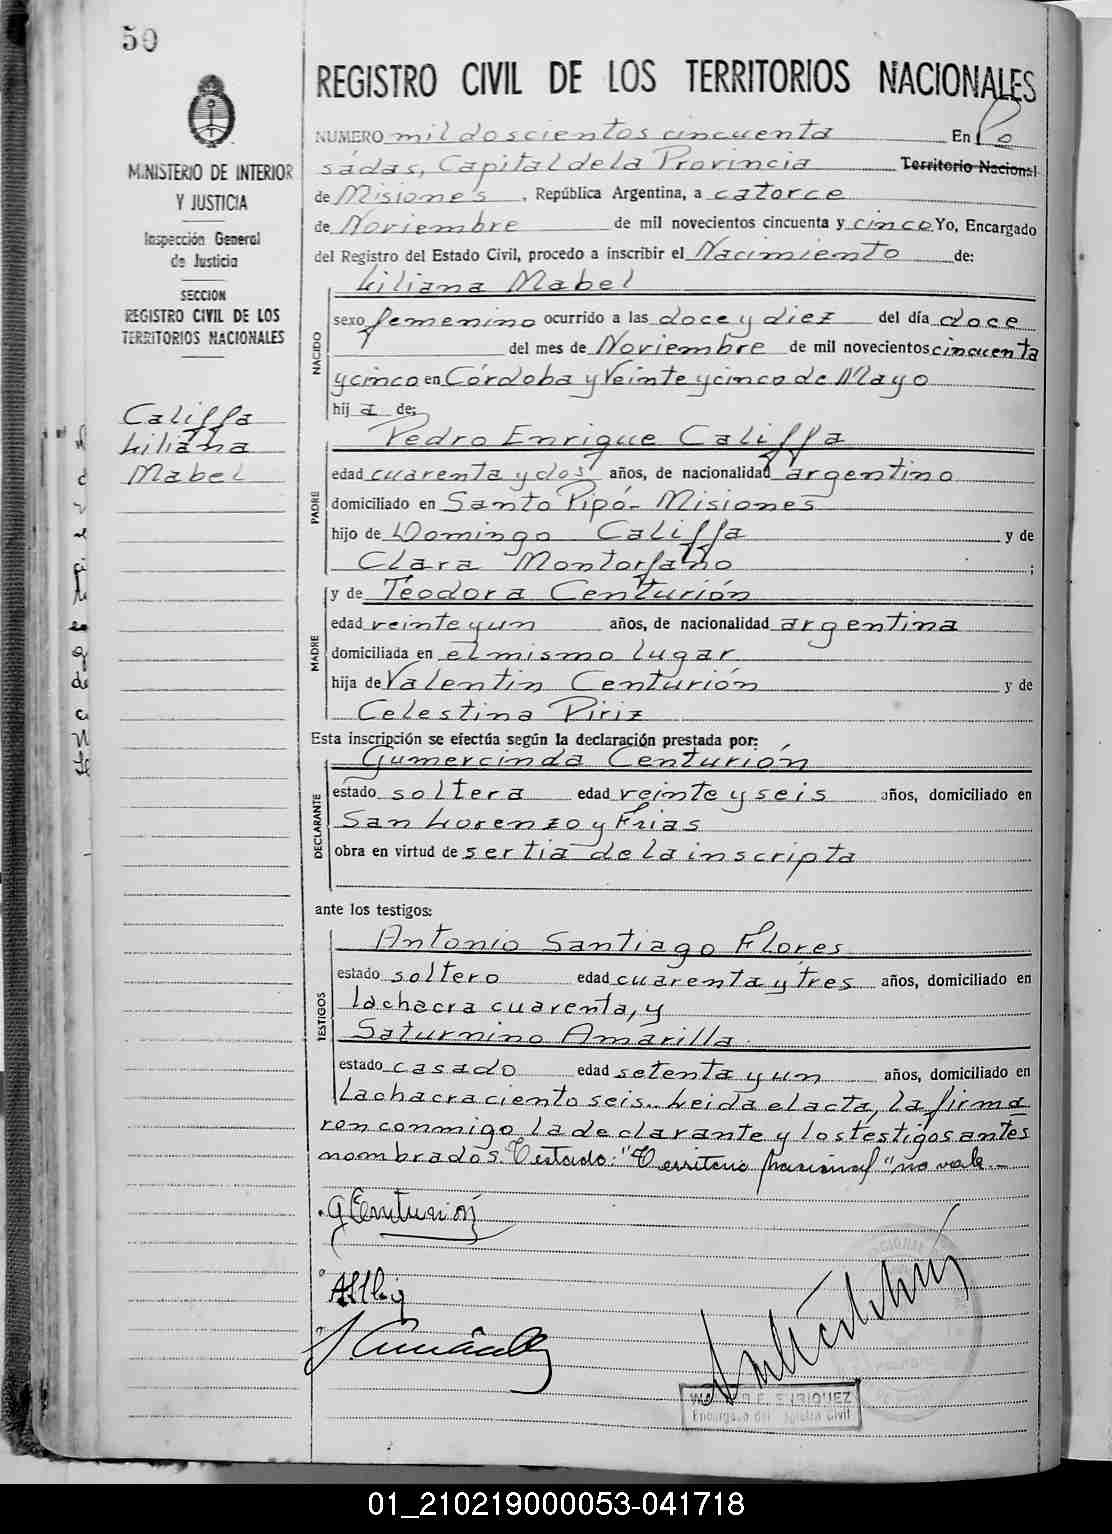 50
MINISTERIO DE INTERIOR
Y JUSTICIA
Inspección General
de Justicia
SECCION
REGISTRO CIVIL DE LOS
TERRITORIOS NACIONALES
Califfa
Liliana
Mabel
REGISTRO CIVIL DE LOS TERRITORIOS NACIONALES
NUMERO mil doscientos cincuenta En Po
sádas, Capital de la Provincia Territorio Nacional
de Misiones, República Argentina, a catorce
de Noviembre de mil novecientos cincuenta y cinco Yo, Encargado
del Registro del Estado Civil, procedo a inscribir el Nacimiento de:
Liliana Mabel
NACIDO
sexo femenino ocurrido a las doce y diez del día doce
del mes de Noviembre de mil novecientos cincuenta
y cinco en Córdoba y Veinte y cinco de Mayo
hij a de:
Pedro Enrique Califfa
PADRE
edad cuarenta y dos años, de nacionalidad argentino
domiciliado en Santo Pipó- Misiones
hijo de Domingo Califfa y de
Clara Montorfano ;
y de Teodora Centurión
MADRE
edad veinte y un años, de nacionalidad argentina
domiciliada en el mismo lugar
hija de Valentin Centurión y de
Celestina Piriz
Esta inscripción se efectúa según la declaración prestada por:
Gumercinda Centurión
DECLARANTE
estado soltera edad veinte y seis años, domiciliado en
San Lorenzo y Frias
obra en virtud de ser tia de la inscripta
ante los testigos:
Antonio Santiago Flores
TESTIGOS
estado soltero edad cuarenta y tres años, domiciliado en
la chacra cuarenta, y
Saturnino Amarilla
estado casado edad setenta y un años, domiciliado en
la chacra ciento seis.. Leida el acta, la firma
ron conmigo la declarante y los testigos antes
nombrados. Testado: "Territorio Nacional" no vale.-
G Centurión
E. ENRIQUEZ
Encargado del Registro Civil
01_210219000053-041718